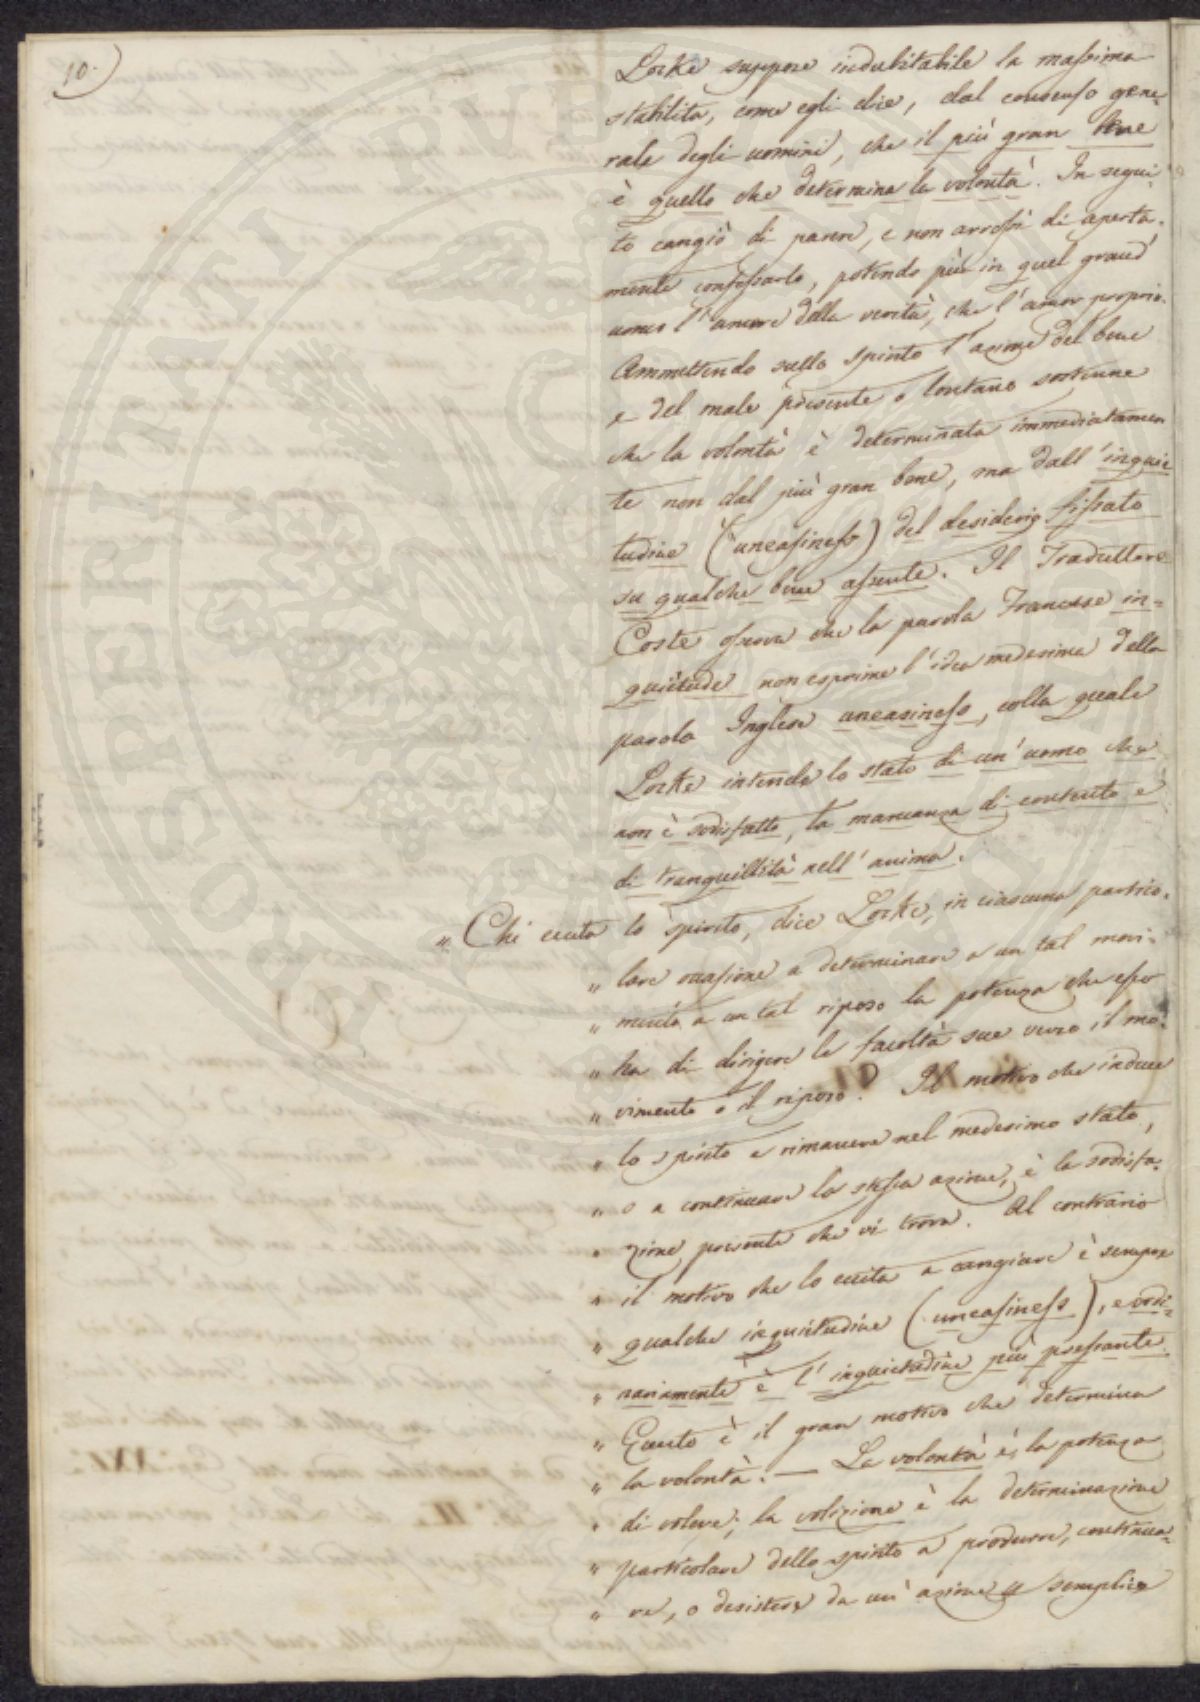 10.
Locke suppose indubitabile la massima
stabilita, come egli dice, dal consenso gene-
rale degli uomini, che il più gran bene
è quello che determina la volontà. In segui-
to cangiò di parere, e non arrossì di aperta-
mente confessarlo, potendo più in quel grand'
uomo l'amore della verità, che l'amor proprio.
Ammettendo sullo spirito l'azione del bene
e del male presente o lontano sostenne
che la volontà è determinata immediatamen
te non dal più gran bene, ma dall'inquie
tudine (uneasiness) del desiderio fissato
su qualche bene assente. Il Traduttore
Coste osserva che la parola Francese in-
quiétude non esprime l'idea medesima della
parola Inglese uneasiness, colla quale
Locke intende lo stato di un'uomo che
non è sodisfatto, la mancanza di contento e
di tranquillità nell'anima.
" Chi eccita lo spirito, dice Locke, in ciascuna partico-
" lare occasione a determinare a un tal movi-
" mento a un tal riposo la potenza che esso
" ha di dirigere le facoltà sue verso il mo-
" vimento o il riposo? Il motivo che induce
" lo spirito a rimanere nel medesimo stato,
" o a continuare la stessa azione, è la sodisfa-
" zione presente che vi trova. Al contrario
" il motivo che lo eccita a cangiare è sempre
" qualche inquietudine (uneasiness), e ordi-
" nariamente è l'inquietudine più pressante.
" Questo è il gran motivo che determina
" la volontà. — La volontà è la potenza
" di volere; la volizione è la determinazione
" particolare dello spirito a produrre, continua-
" re, o desistere da un'azione semplice
PROSPERITATI PVBLICAE